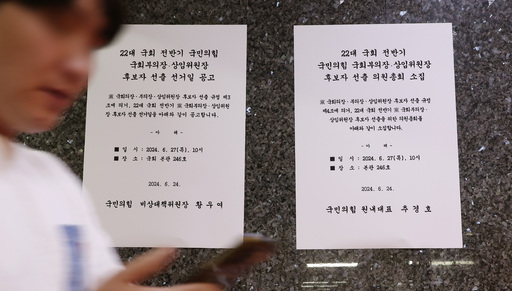 22대 국회 전반기 국민의힘
국회부의장·상임위원장
후보자 선출 선거일 공고
※ 국회의장·부의장·상임위원장 후보자 선출 규정 제3
조에 의거, 22대 국회 전반기 ※ 국회부의장·상임위원
장 후보자 선출 선거일을 아래와 같이 공고합니다.
- 아 래 -
■ 일 시 : 2024. 6. 27(목), 10시
■ 장 소 : 국회 본관 246호
2024. 6. 24.
국민의힘 비상대책위원장 황우여
22대 국회 전반기
국민의힘 국회부의장·상임위원장
후보자 선출 의원총회 소집
※ 국회의장·부의장·상임위원장 후보자 선출 규정
제4조에 의거, 22대 국회 전반기 ※ 국회부의장·
상임위원장 후보자 선출을 위한 의원총회를
아래와 같이 소집합니다.
- 아 래 -
■ 일 시 : 2024. 6. 27(목), 10시
■ 장 소 : 본관 246호
2024. 6. 24.
국민의힘 원내대표 추경호